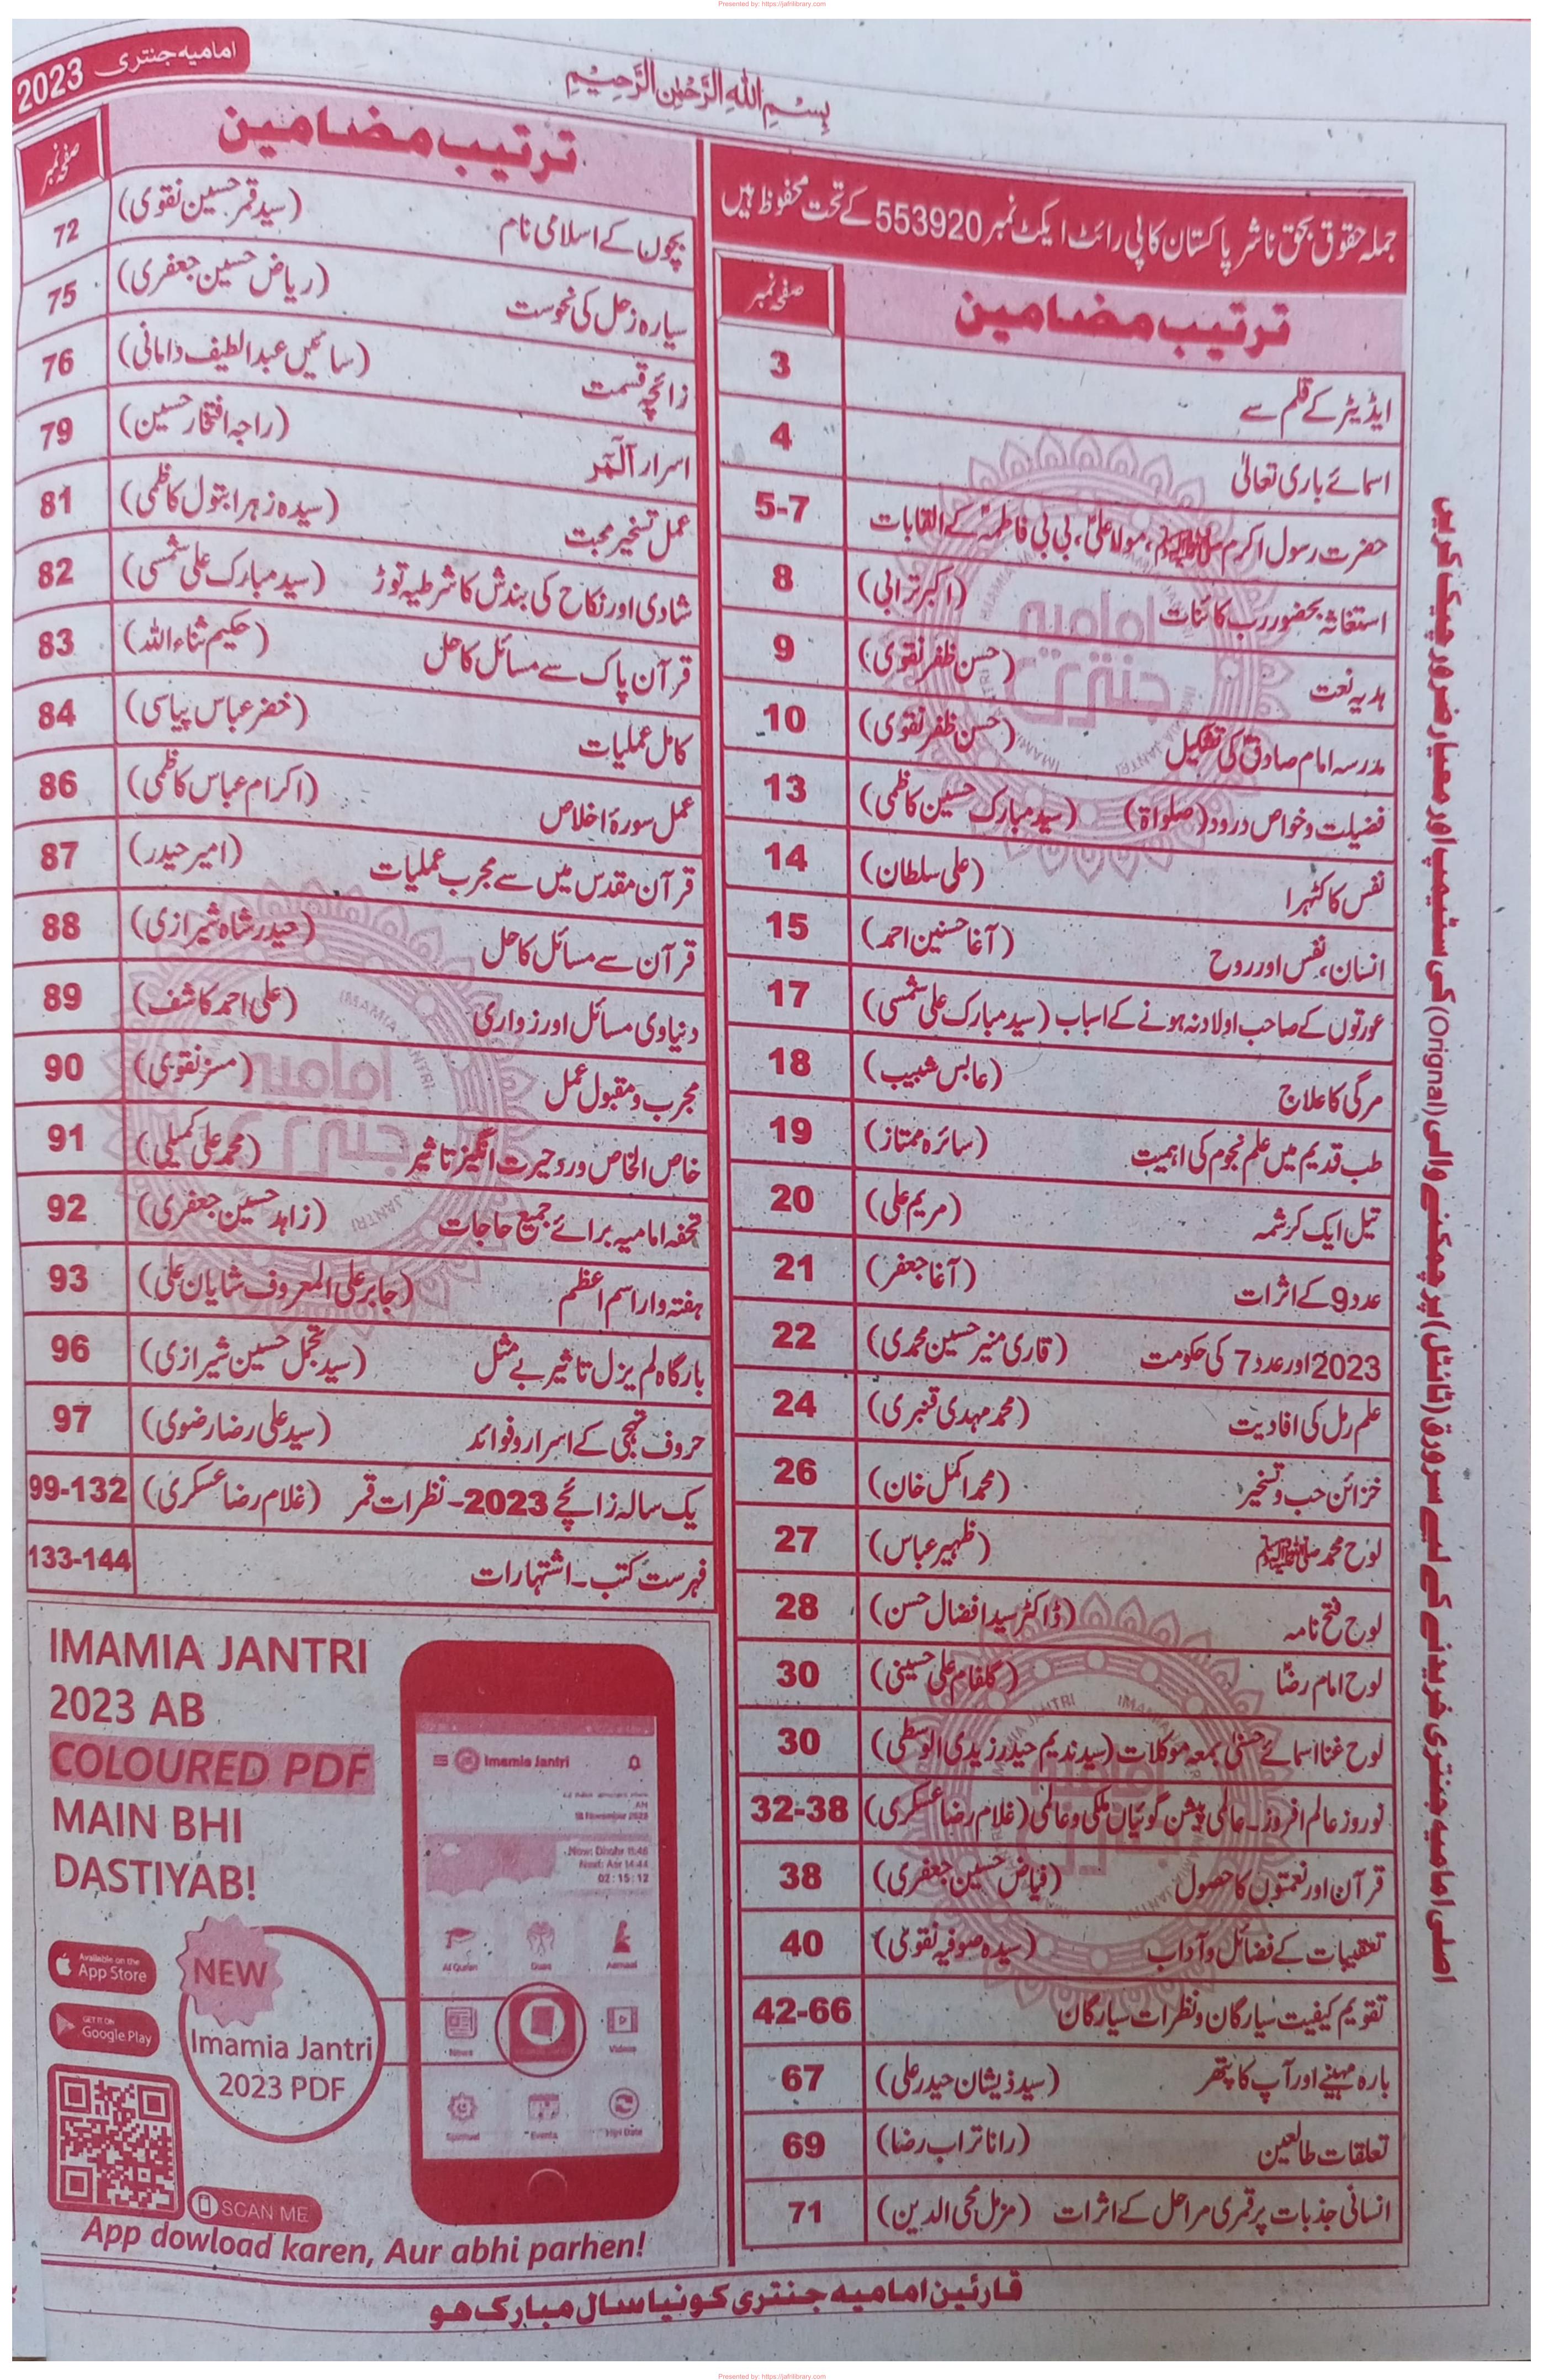 Presented by: https://jafrilibrary.com
امامیہ جنتری 2023
بِسْمِ اللهِ الرَّحْمٰنِ الرَّحِيْمِ
جملہ حقوق بحق ناشر پاکستان کاپی رائٹ ایکٹ نمبر 553920 کے تحت محفوظ ہیں
ترتیب مضامین صفحہ نمبر
ایڈیٹر کے قلم سے 3
اسمائے باری تعالیٰ 4
حضرت رسول اکرم ﷺ، مولا علیؑ، بی بی فاطمہؑ کے القابات 5-7
استغاثہ بحضور رب کائنات (اکبر ترابی) 8
ہدیہ نعت (حسن ظفر نقوی) 9
مدرسہ امام صادقؑ کی تشکیل (حسن ظفر نقوی) 10
فضیلت و خواص درود (صلواة) (سید مبارک حسین کاظمی) 13
نفس کا کٹہرا (علی سلطان) 14
انسان، نفس اور روح (آغا حسنین احمد) 15
عورتوں کے صاحب اولاد نہ ہونے کے اسباب (سید مبارک علی شمسی) 17
مرگی کا علاج (عابس شبیب) 18
طب قدیم میں علم نجوم کی اہمیت (سائرہ ممتاز) 19
تیل ایک کرشمہ (مریم علی) 20
عدد 9 کے اثرات (آغا جعفر) 21
2023 اور عدد 7 کی حکومت (قاری منیر حسین محمدی) 22
علم رمل کی افادیت (محمد مہدی قنبری) 24
خزائن حب و تسخیر (محمد اکمل خان) 26
لوح محمد ﷺ (ظہیر عباس) 27
لوح فتح نامہ (ڈاکٹر سید افضال حسن) 28
لوح امام رضاؑ (گلفام علی حسینی) 30
لوح غنا اسمائے حسنیٰ بمعہ موکلات (سید ندیم حیدر زیدی الوسطی) 30
نوروز عالم افروز۔ عالمی پیشن گوئیاں ملکی و عالمی (غلام رضا عسکری) 32-38
قرآن اور نعمتوں کا حصول (فیاض حسین جعفری) 38
تعقیبات کے فضائل و آداب (سیدہ صوفیہ نقوی) 40
تقویم کیفیت سیارگان و نظرات سیارگان 42-66
بارہ مہینے اور آپ کا پتھر (سید ذیشان حیدر علی) 67
تعلقات طالعین (رانا تراب رضا) 69
انسانی جذبات پر قمری مراحل کے اثرات (مزمل محی الدین) 71
ترتیب مضامین صفحہ نمبر
بچوں کے اسلامی نام (سید قمر حسین نقوی) 72
سیارہ زحل کی نحوست (ریاض حسین جعفری) 75
زائچہ قسمت (سائیں عبداللطیف دامانی) 76
اسرار آلٓمٓر (راجہ افتخار حسین) 79
عمل تسخیر محبت (سیدہ زہرا بتول کاظمی) 81
شادی اور نکاح کی بندش کا شرطیہ توڑ (سید مبارک علی شمسی) 82
قرآن پاک سے مسائل کا حل (حکیم ثناء اللہ) 83
کامل عملیات (خضر عباس پیاسی) 84
عمل سورۂ اخلاص (اکرام عباس کاظمی) 86
قرآن مقدس میں سے مجرب عملیات (امیر حیدر) 87
قرآن سے مسائل کا حل (حیدر شاہ شیرازی) 88
دنیاوی مسائل اور زواری (علی احمد کاشف) 89
مجرب و مقبول عمل (مسز نقوی) 90
خاص الخاص ورد حیرت انگیز تاثیر (محمد علی کمیلی) 91
تحفہ امامیہ برائے جمیع حاجات (زاہد حسین جعفری) 92
ہفتہ وار اسم اعظم (جابر علی المعروف شایان علی) 93
بارگاہ لم یزل تاثیر بے مثل (سید تجمل حسین شیرازی) 96
حروف تہجی کے اسرار و فوائد (سید علی رضا رضوی) 97
یک سالہ زائچے 2023۔ نظرات قمر (غلام رضا عسکری) 99-132
فہرست کتب۔ اشتہارات 133-144
IMAMIA JANTRI
2023 AB
COLOURED PDF
MAIN BHI
DASTIYAB!
Available on the
App Store
GET IT ON
Google Play
NEW
Imamia Jantri
2023 PDF
SCAN ME
Imamia Jantri
Now: Dhohr 11:46
Next: Asr 14:44
02:15:12
Al Quran
Duas
Aamaal
News
Videos
Spiritual
Events
Hijri Date
App dowload karen, Aur abhi parhen!
اصلی امامیہ جنتری خریدنے کے لیے سرورق (ٹائٹل) پر چمکنے والی (Orignal) کی سٹیمپ اور معیار ضرور چیک کریں
قارئین امامیہ جنتری کو نیا سال مبارک ہو
Presented by: https://jafrilibrary.com